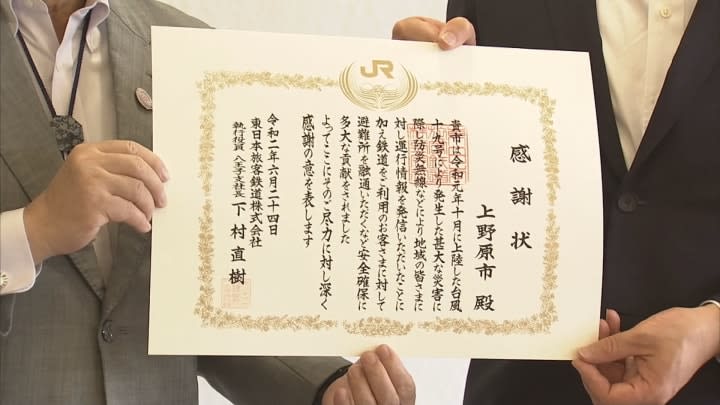 JR
感謝状
上野原市 殿
貴市は令和元年十月に上陸した台風
十九号により発生した甚大な災害に
際し防災無線などにより地域の皆さまに
対し運行情報を発信いただいたことに
加え鉄道をご利用のお客さまに対して
避難所を融通いただくなど安全確保に
多大な貢献をされました
よってここにそのご尽力に対し深く
感謝の意を表します
令和二年六月二十四日
東日本旅客鉄道株式会社
執行役員 八王子支社長 下村直樹